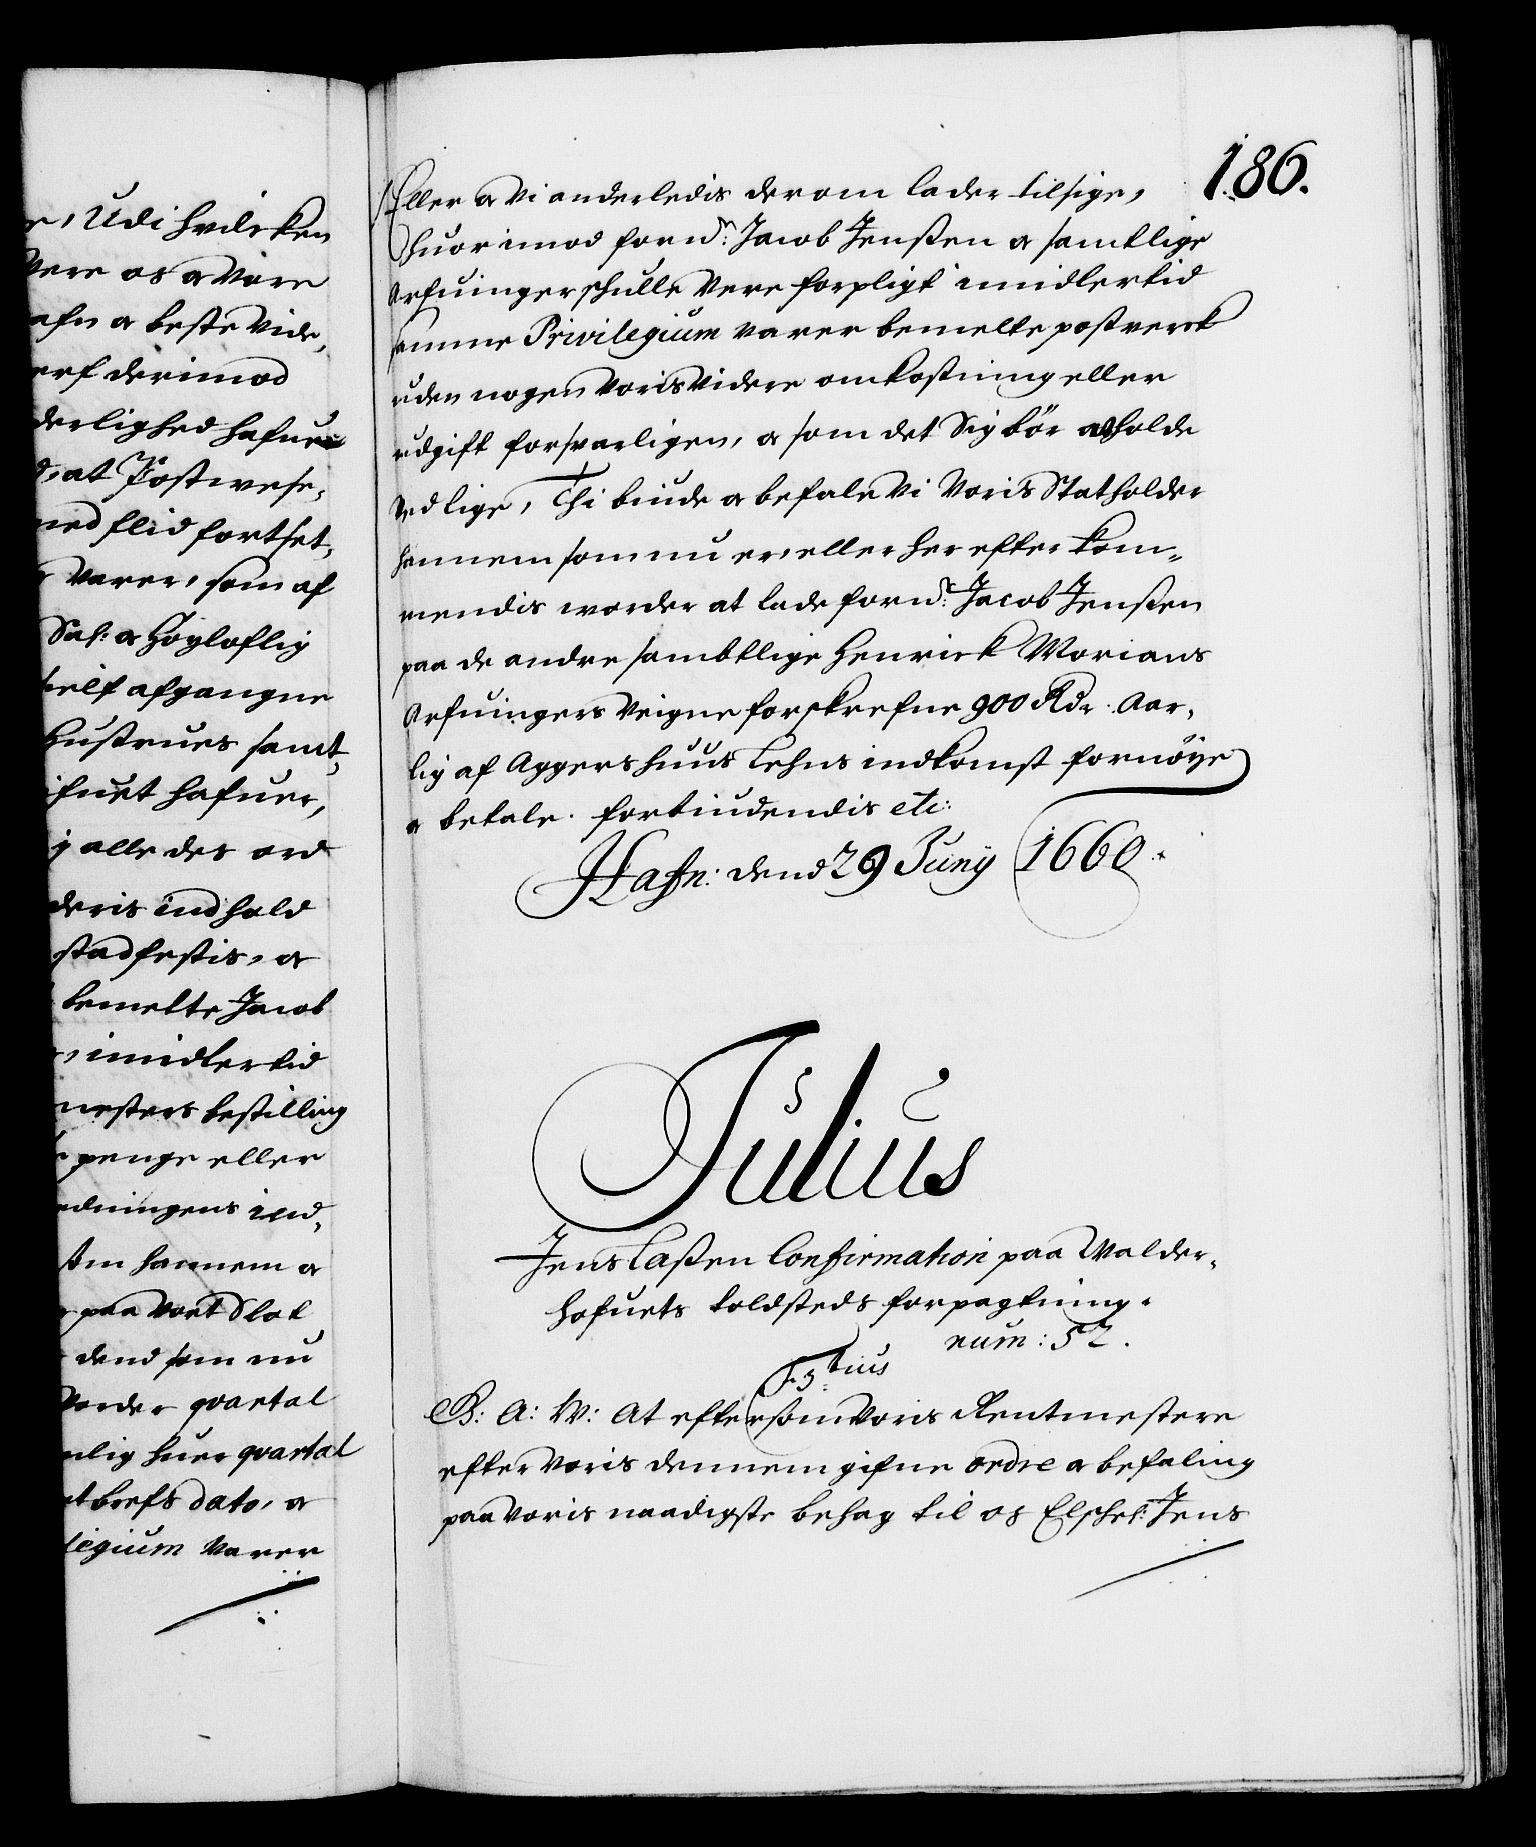 r, Udi hvilcken
were os a Vore
afn a beste Vide,
erf derimod
derlighed hafuer
d, at Postwese,
med flid fortset,
Varer, som af
Sal: a Høyloflig
self afgangne
Hustrues samt,
ifuet hafuer,
j alle des ord
deris indhold
stadfestis, a
bemelte Jacob
, imidlertid
mesters bestilling
penge eller
edningens ind,
hannem a
paa Vort Slot
dend som nu
Vorder qvartal
nlig huer qvartal
brefs dato, a
legium Varer
186.
Eller a Vi anderledis derom lader tilsige,
huorimod fornd: Jacob Jenssen a samtlige
Arfuinger schulle Vere forpligt imidlertid
samme Privilegium varer bemelte postverck
uden nogen Voris Videre omkostning eller
udgift forsvarligen, a som det Sig bör at holde
Ved lige, Thi biude a befale Vi Voris Statholder
hannem som nu er, eller her efter kom,,
mendis worder at lade fornd: Jacob Jenssen
paa de andre sambtlige Henrick Morians
Arfuingers Veigne forskrefne 900 Rdr. Aar,
lig af Aggershuus Lehns indkomst fornöye
a betale. forbiudendis etc:
Hafn: dend 29 Junij 1660.
Julius
Jens Lassen Confirmation paa Walder,
hofuets toldsteds forpagtning.
num: 52.
F. 3tius
G: A: W: At eftersom Voris Rentmestere
efter Voris dennem gifne ordre a befaling
paa Voris naadigste behag til os Elschel: Jens